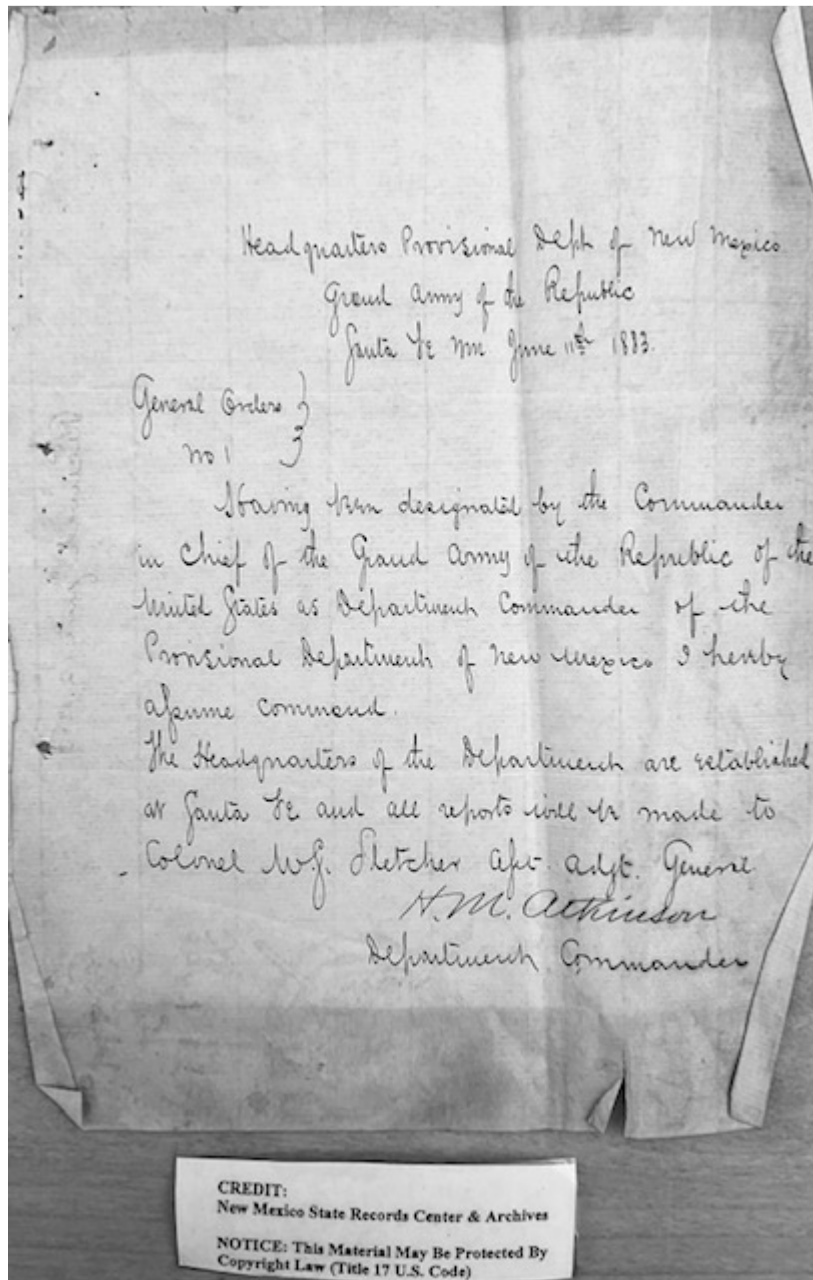 Headquarters Provisional Dept of New Mexico
Grand Army of the Republic
Santa Fe NM June 11th 1883.
General Orders }
No 1
Having been designated by the Commander
in Chief of the Grand Army of the Republic of the
United States as Department Commander of the
Provisional Department of New Mexico I hereby
assume command.
The Headquarters of the Department are established
at Santa Fe and all reports will be made to
Colonel W.J. Fletcher Asst. Adgt. General
H.M. Atkinson
Department Commander
CREDIT:
New Mexico State Records Center & Archives
NOTICE: This Material May Be Protected By
Copyright Law (Title 17 U.S. Code)